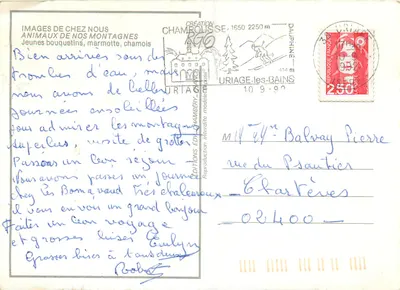 IMAGES DE CHEZ NOUS
ANIMAUX DE NOS MONTAGNES
Jeunes bouquetins, marmotte, chamois
Bien arrivés sous des
trombes d'eau, mais
nous avons de belles
journées ensoleillées
pour admirer les montagnes
superbes, visite de grottes
Passons un bon séjour
Nous avons passé une journée
chez les Bonnavaud très chaleureux
il vous envoie un grand bonjour
Faites un bon voyage
et grosses bises Evelyne
Grosses bises à tous deux
Robert
CHAMROUSSE-1650 2250m
DAUPHINÉ
URIAGE-les-BAINS
URIAGE
2,50
Mr Mme Balvay Pierre
rue du Psautier
Chartèves
02400